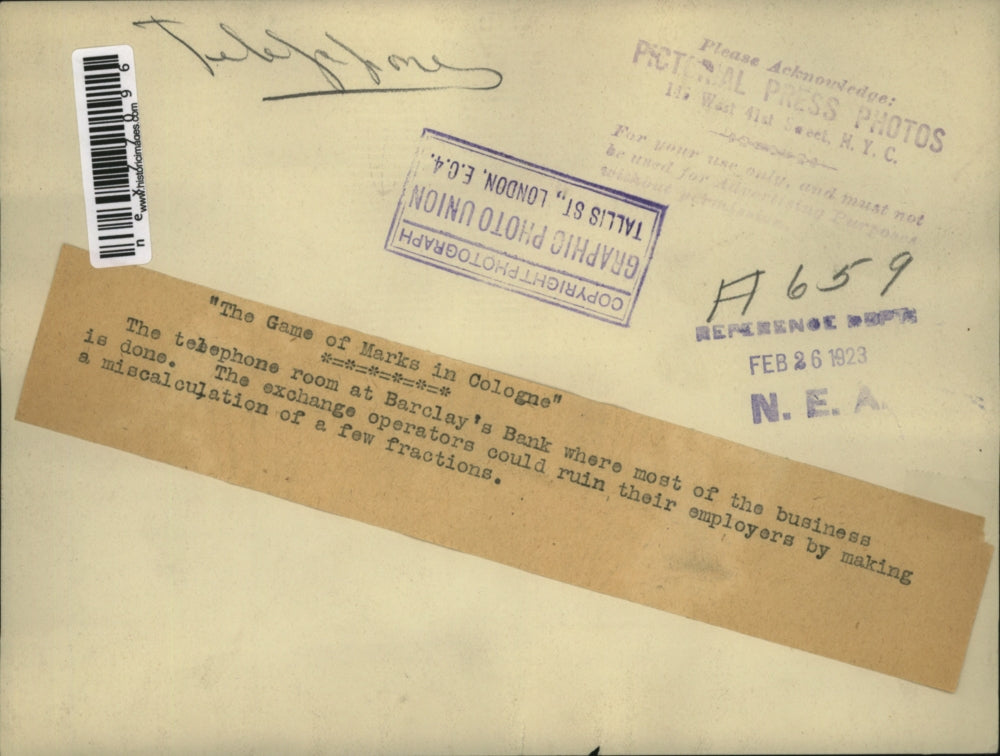 Telephones
Please Acknowledge:
PICTORIAL PRESS PHOTOS
West 41st Street, N. Y. C.
For your use only, and must not
be used for Advertising Purposes
without permission.
COPYRIGHT PHOTOGRAPH
GRAPHIC PHOTO UNION
TALLIS ST., LONDON, E.C.4.
www.historicimages.com
A 659
REFERENCE DEPT.
FEB 26 1923
N. E. A.
"The Game of Marks in Cologne"
*=*=*=*=*=*
The telephone room at Barclay's Bank where most of the business
is done. The exchange operators could ruin their employers by making
a miscalculation of a few fractions.